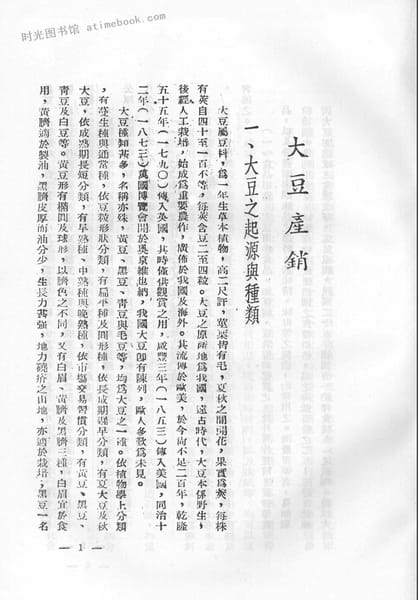 时光图书馆 atimebook.com
大豆產銷
一、大豆之起源與種類
大豆屬豆科，爲一年生草本植物，高二尺許，莖葉皆有毛，夏秋之間開花，果實爲莢，每株
有莢自四十至一百不等，每莢含豆二至四粒。大豆之原產地爲我國，遠古時代，大豆本係野生，
後經人工栽培，始成爲重要農作，廣佈於我國及海外。其流傳於歐美，於今尙不足二百年，乾隆
五十五年（一七九〇）傳入英國，其時僅供觀賞之用，咸豐三年（一八五三）傳入美國，同治十
二年（一八七三）萬國博覽會開於奧京維也納，我國大豆卽有陳列，歐人多歎爲未見。
大豆種類甚多，名稱亦殊，黃豆、黑豆、青豆與毛豆等，均爲大豆之一種。依植物學上分類
，有蔓生種與通常種，依豆粒形狀分類，有扁平種及圓形種，依長成期遲早分類，有夏大豆及秋
大豆，依成熟期長短分類，有早熟種、中熟種與晚熟種，依市場交易習慣分類，有黃豆、黑豆、
青豆及白豆等。黃豆形有橢圓及球形，以臍色之不同，又有白眉、黃臍及黑臍三種，白眉宜於食
用，黃臍適於製油，黑臍皮厚而油分少，生長力甚強，地力磽瘠之山地，亦適於栽培，黑豆一名
— 1 —